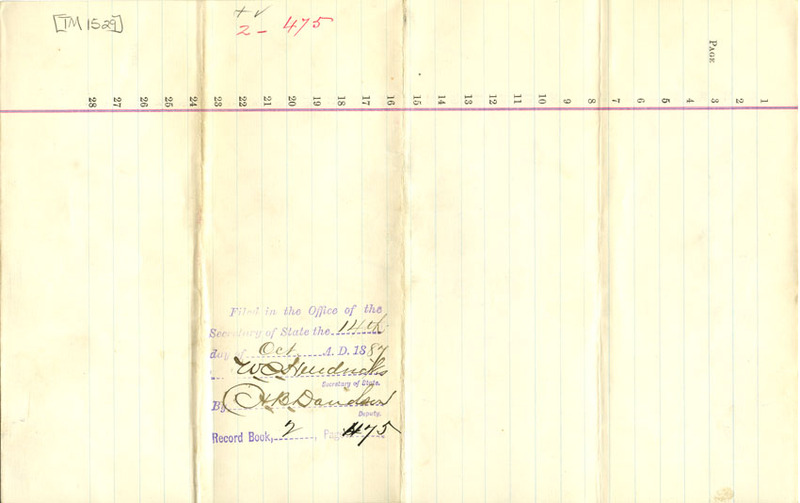 [TM 1529]
+ ✓
2 - 475
PAGE
1
2
3
4
5
6
7
8
9
10
11
12
13
14
15
16
17
18
19
20
21
22
23
24
25
26
27
28
Filed in the Office of the
Secretary of State the 14th
day of Oct A. D. 1887
W C Hendricks
Secretary of State.
By H B Davidson
Deputy.
Record Book, 2, Page 475